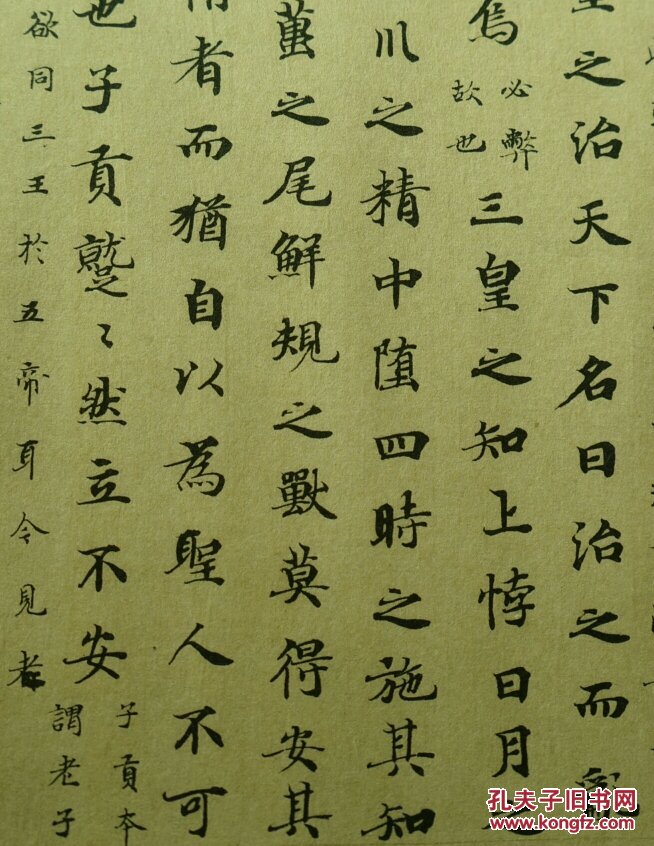 之治天下名曰治之而亂
焉
必弊
故也
三皇之知上悖日月之
川之精中堕四時之施其知
之尾鮮規之獸莫得安其
者而猶自以為聖人不可
也子貢蹵〻然立不安
子貢本
謂老子
欲同三王於五帝耳今見老
孔夫子旧书网
www.kongfz.com